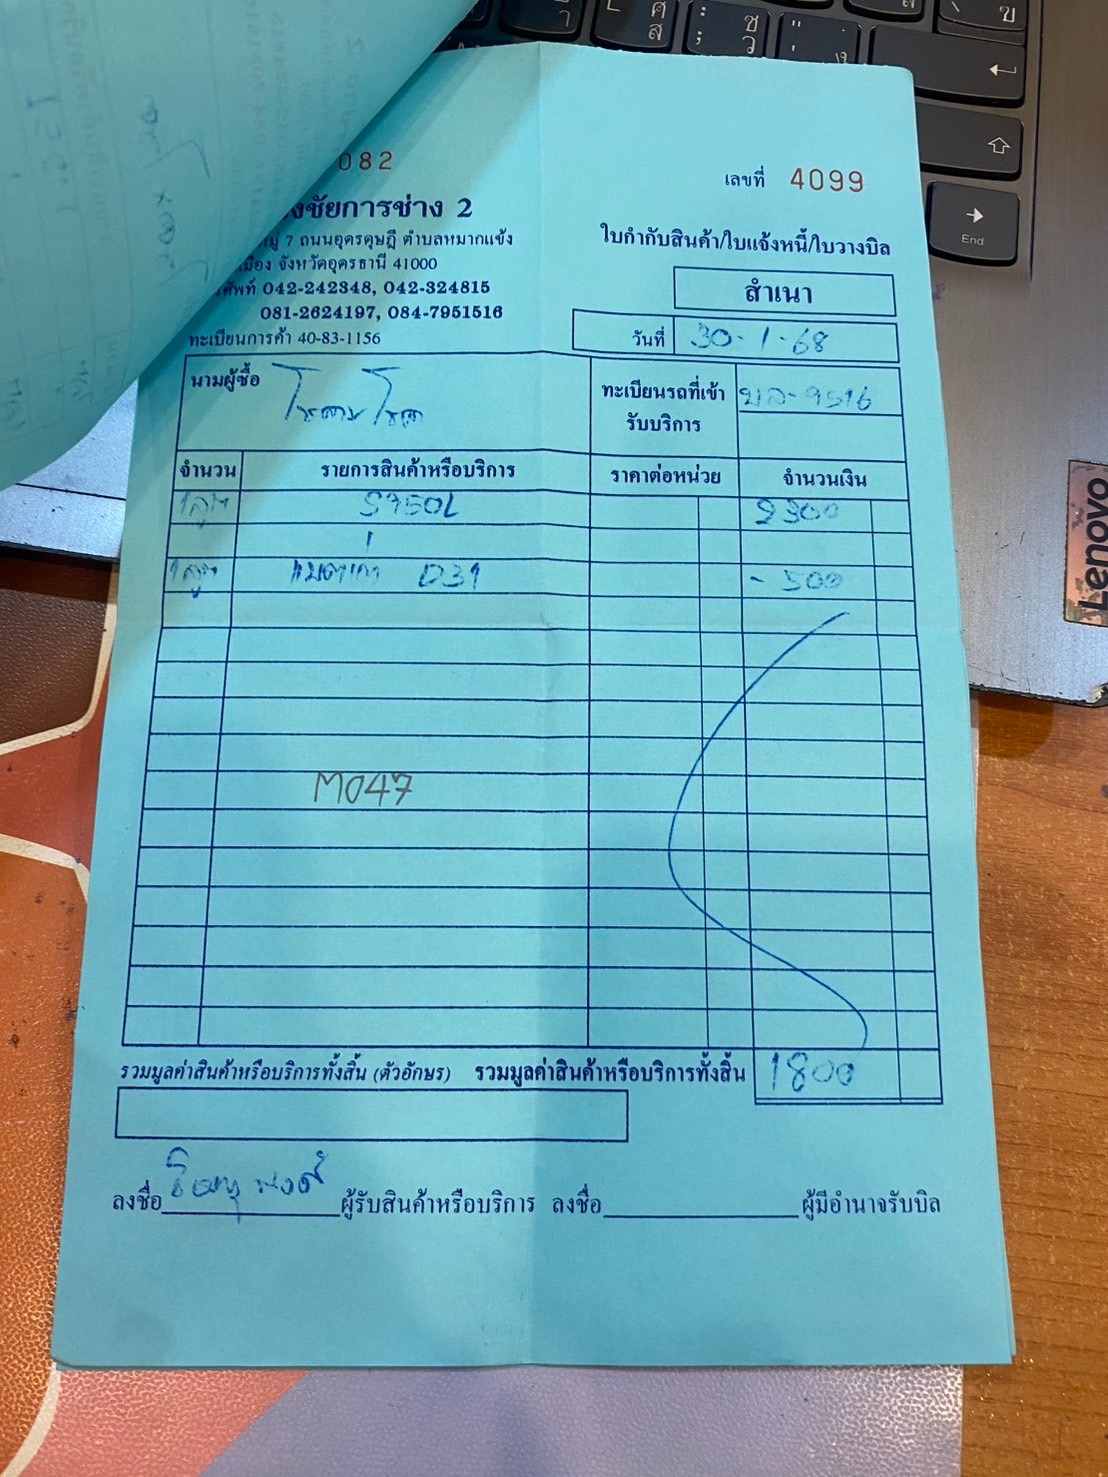 082
เลขที่ 4099
งชัยการช่าง 2
หมู่ 7 ถนนอุดรดุษฎี ตำบลหมากแข้ง
เมือง จังหวัดอุดรธานี 41000
ศัพท์ 042-242348, 042-324815
081-2624197, 084-7951516
ทะเบียนการค้า 40-83-1156
ใบกำกับสินค้า/ใบแจ้งหนี้/ใบวางบิล
สำเนา
วันที่ 30-1-68
นามผู้ซื้อ
ทะเบียนรถที่เข้ารับบริการ 9516
จำนวน รายการสินค้าหรือบริการ ราคาต่อหน่วย จำนวนเงิน
1ลูก S750L 2300
1ลูก แบตเก่า D31 - 500
M047
รวมมูลค่าสินค้าหรือบริการทั้งสิ้น (ตัวอักษร) รวมมูลค่าสินค้าหรือบริการทั้งสิ้น 1800
ลงชื่อ ผู้รับสินค้าหรือบริการ ลงชื่อ ผู้มีอำนาจรับบิล
Lenovo
End